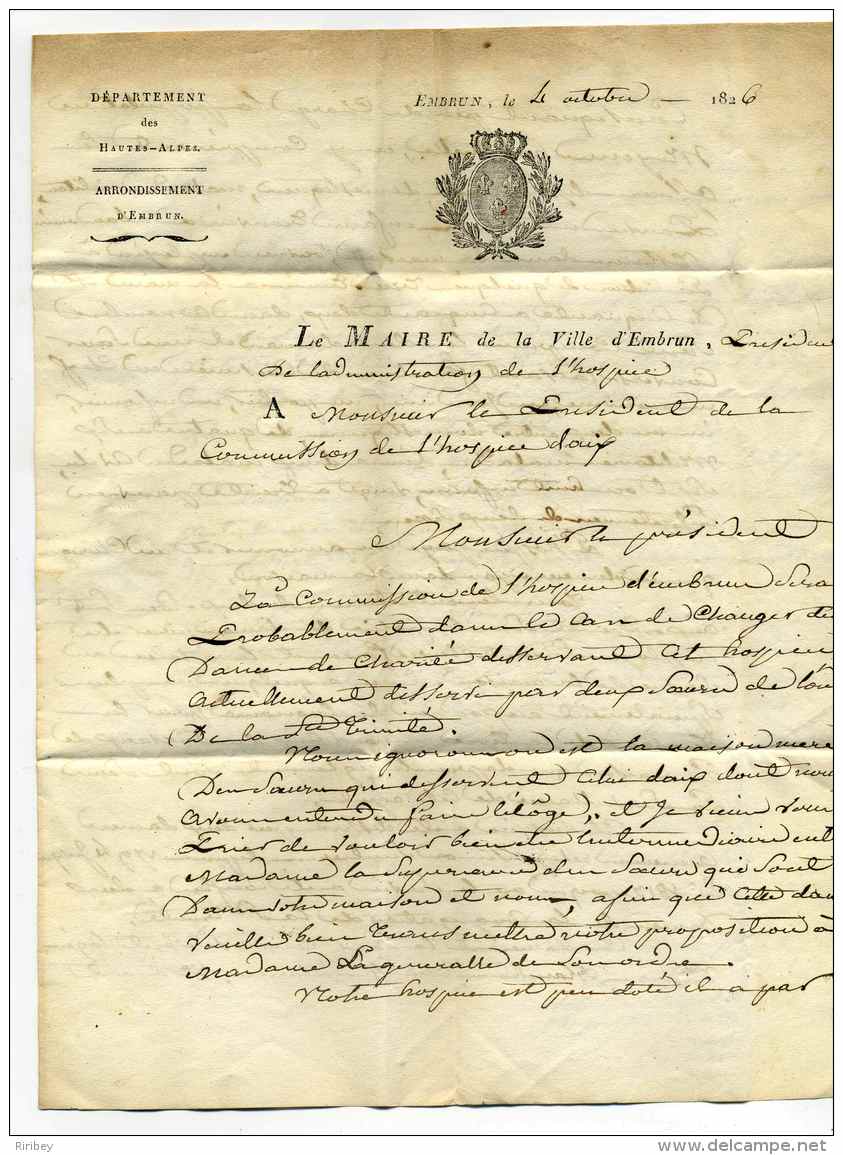 DÉPARTEMENT
des
HAUTES-ALPES.
ARRONDISSEMENT
D'EMBRUN.
EMBRUN, le 4 octobre 1826
LE MAIRE de la Ville d'Embrun, Président
De ladministration de l'hospice
A Monsieur le Président de la
Commission de l'hospice daix
Monsieur le président
La Commission de l'hospice d'embrun Sera
Probablement dans le Cas de Changer de
Dames de Charité desservant Cet hospice
actuellement desservi par deux Sœurs de l'or
De la Ste Trinité.
Nous ignorons ou est la maison mere
Des Sœurs qui desservent Celui daix dont nous
avons entendu faire l'élôge, et Je viens vous
Prier de vouloir bien être Intermédiaire ent
Madame la Supérieure des Sœurs qui Sont
Dans votre maison et nous, afin que Cette dam
Veuille bien Transmettre notre proposition à
Madame La generalle de Son ordre.
Notre hospice est peu doté il a par
Riribey
delcampe.net